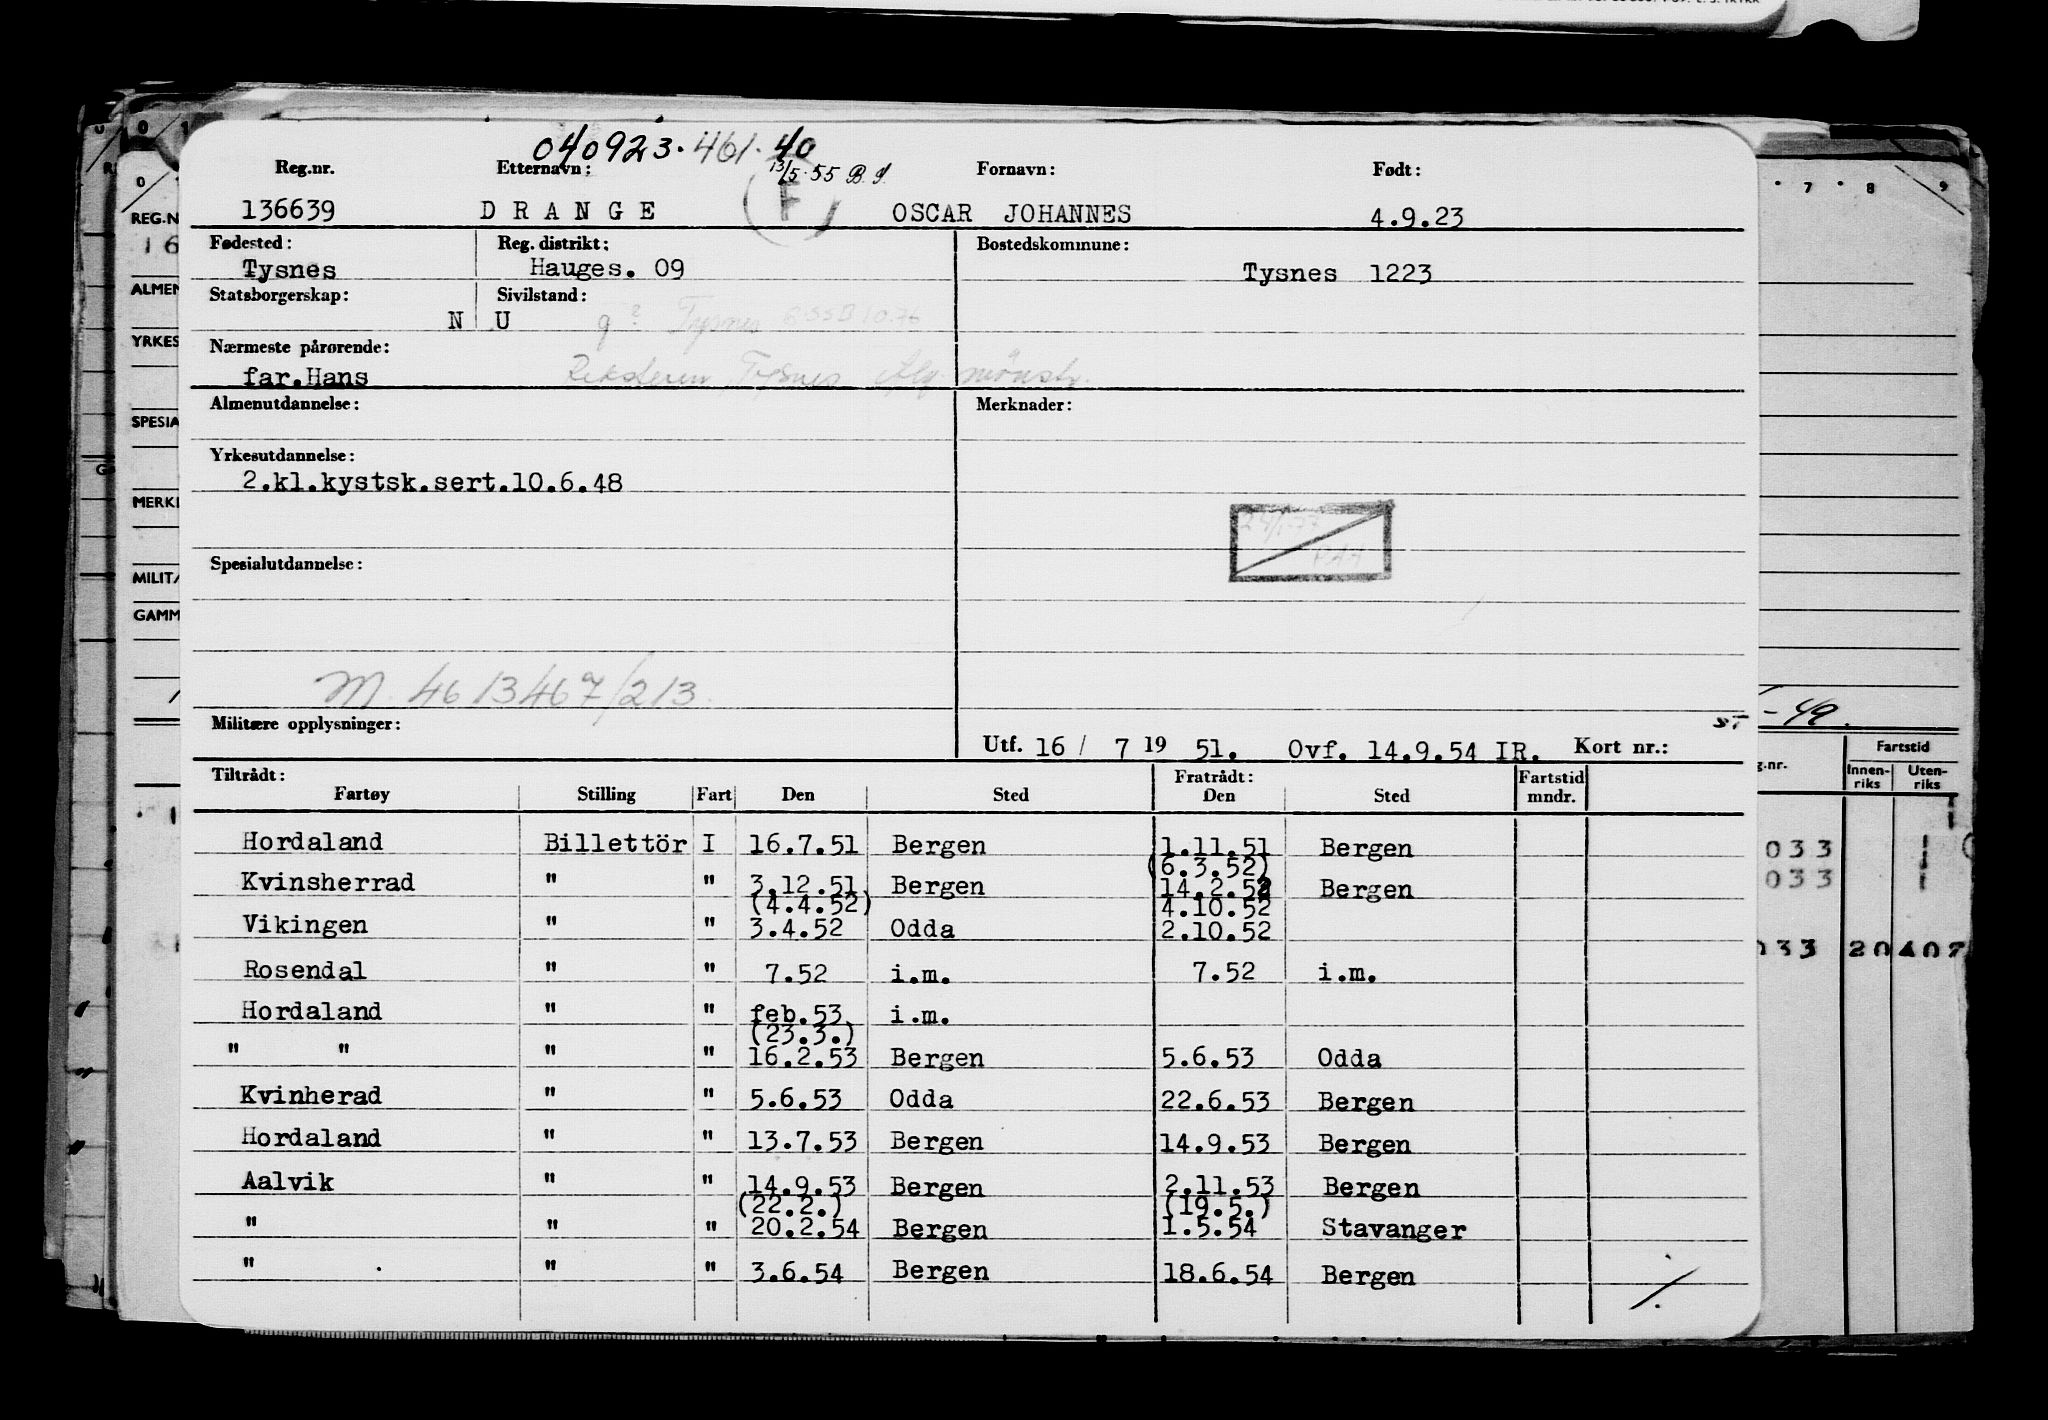 040923.461.40
Reg.nr. Etternavn: 13/5.55 B.J. Fornavn: Født:
136639 DRANGE (F) OSCAR JOHANNES 4.9.23
Fødested: Reg. distrikt: Bostedskommune:
Tysnes Hauges. 09 Tysnes 1223
Statsborgerskap: Sivilstand:
N U g? Tysnes
Nærmeste pårørende:
far.Hans Reksteren Tysnes mönstr.
Almenutdannelse: Merknader:
Yrkesutdannelse:
2.kl.kystsk.sert.10.6.48
Spesialutdannelse:
M. 4613467/213.
Militære opplysninger:
Utf. 16/ 7 19 51. Ovf. 14.9.54 IR. Kort nr.:
Tiltrådt: Fratrådt: Fartstid
Fartøy Stilling Fart Den Sted Den Sted mndr.
Hordaland Billettör I 16.7.51 Bergen 1.11.51 Bergen
(6.3.52)
Kvinsherrad " " 3.12.51 Bergen 14.2.52 Bergen
(4.4.52) 4.10.52
Vikingen " " 3.4.52 Odda 2.10.52
Rosendal " " 7.52 i.m. 7.52 i.m.
Hordaland " " feb.53 i.m.
(23.3.)
" " " " 16.2.53 Bergen 5.6.53 Odda
Kvinherad " " 5.6.53 Odda 22.6.53 Bergen
Hordaland " " 13.7.53 Bergen 14.9.53 Bergen
Aalvik " " 14.9.53 Bergen 2.11.53 Bergen
(22.2.) (19.5.)
" " " 20.2.54 Bergen 1.5.54 Stavanger
" " " 3.6.54 Bergen 18.6.54 Bergen
REG.N
16
ALMEN
YRKES
SPESIA
MERK
MILIT
GAMM
7 8 9
-49.
Fartstid
g.nr. Innen-riks Uten-riks
033
033
033 20407